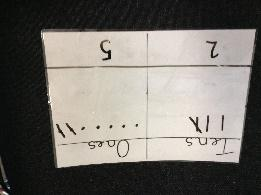 Tens Ones
2 5